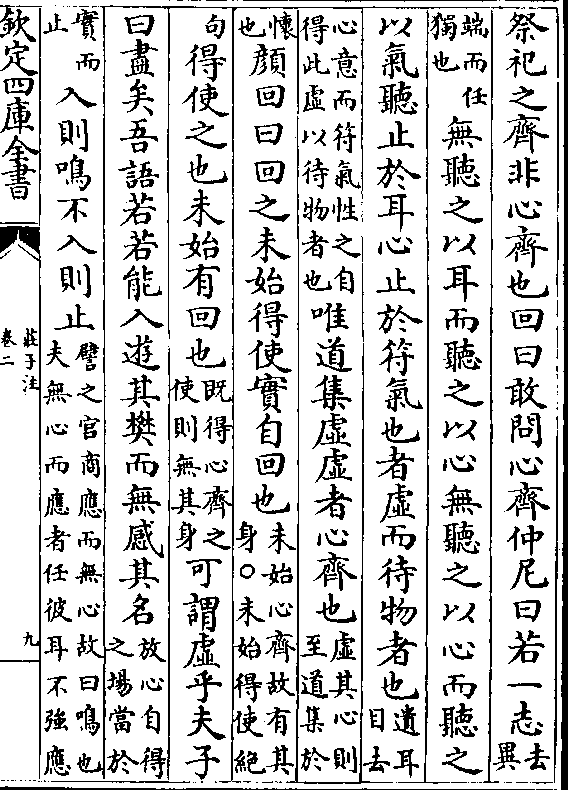 祭祀之齊非心齊也回曰敢問心齊仲尼曰若一志去異
端而任獨也無聽之以耳而聽之以心無聽之以心而聽之
以氣聽止於耳心止於符氣也者虛而待物者也遺耳目去
心意而符氣性之自得此虛以待物者也唯道集虛虛者心齊也虛其心則至道集於
懷也顏回曰回之未始得使實自回也未始心齊故有其身○未始得使絕
句得使之也未始有回也既得心齊之使則無其身可謂虛乎夫子
曰盡矣吾語若若能入遊其樊而無感其名放心自得之場當於
實而止入則鳴不入則止譬之官商應而無心故曰鳴也夫無心而應者任彼耳不強應
欽定四庫全書
莊子注
卷二
九